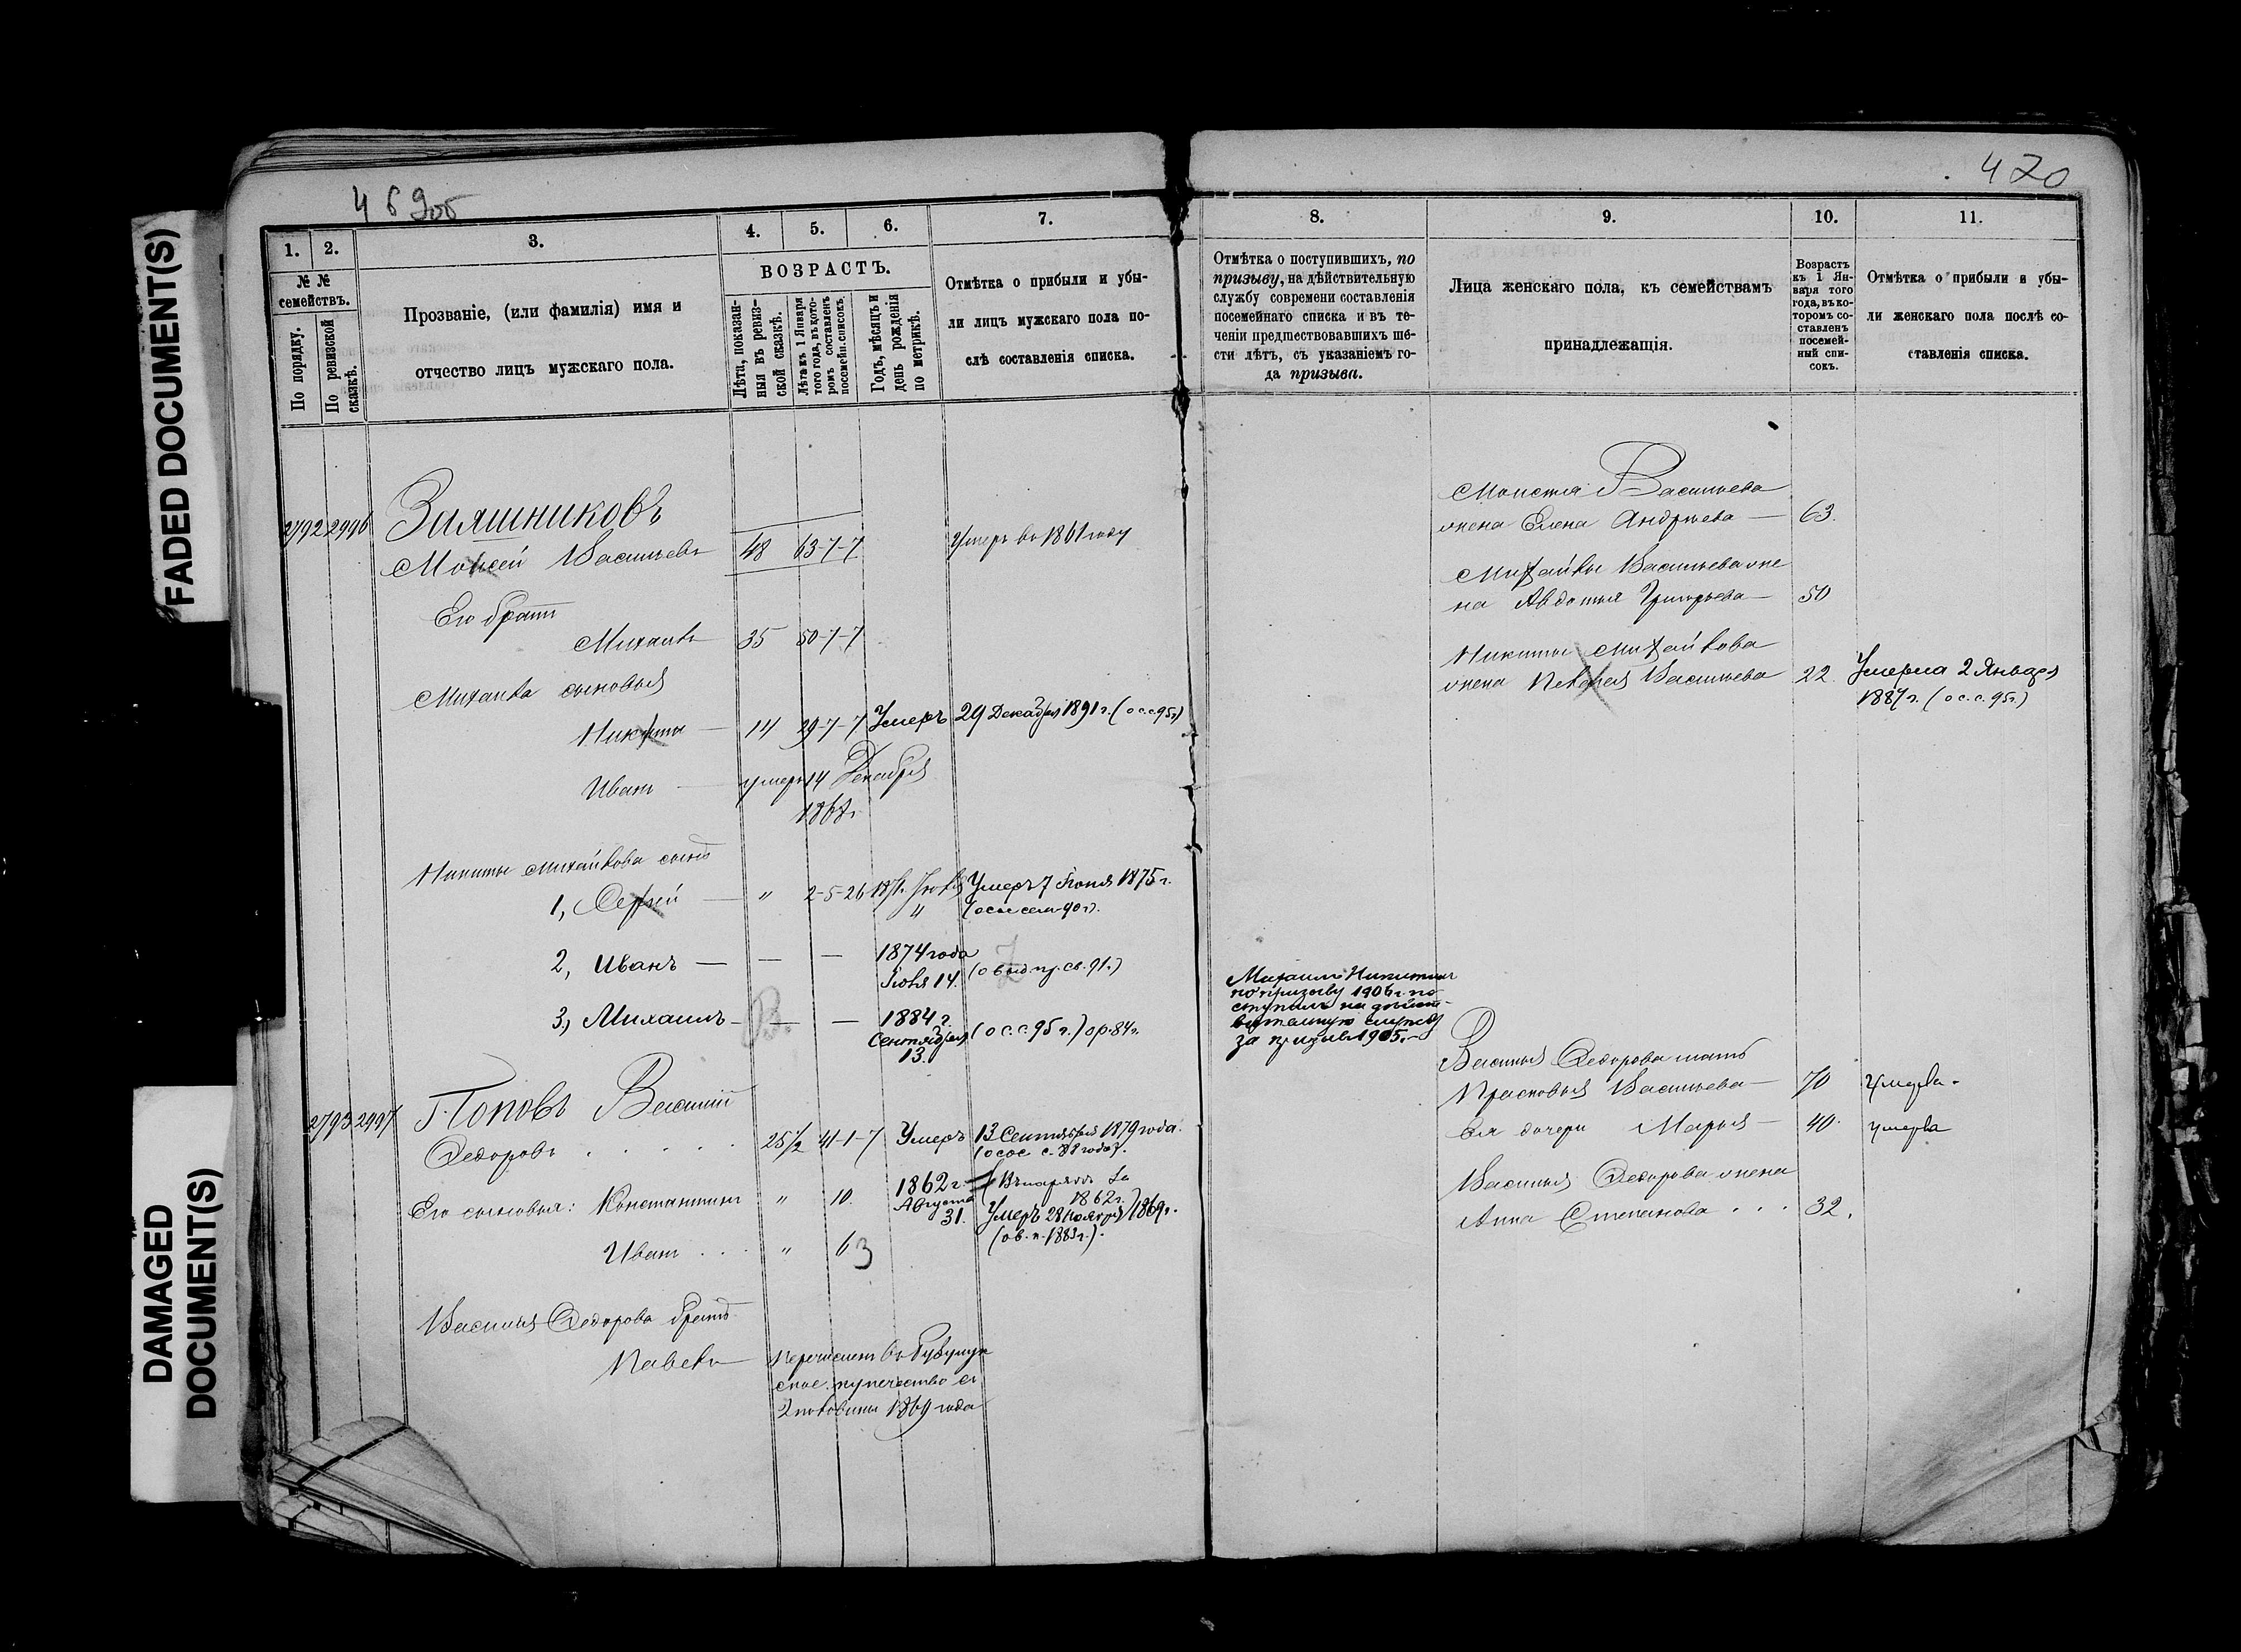 FADED DOCUMENT(S)
DAMAGED
DOCUMENT(S)
469об
1.
2.
3.
4.
5.
6.
7.
№ №
семействъ.
По порядку.
По ревизской
сказкѣ.
Прозваніе, (или фамилія) имя и
отчество лицъ мужскаго пола.
ВОЗРАСТЪ.
Лѣта, показан-
ныя въ ревиз-
ской сказкѣ.
Лѣта къ 1 Января
того года, въ кото-
ромъ составленъ
посемейн. списокъ.
Годъ, мѣсяцъ и
день рожденія
по метрикѣ.
Отмѣтка о прибыли и убы-
ли лицъ мужскаго пола по-
слѣ составленія списка.
2792 2996
Заяшниковъ
Моисей Васильевъ 48 63-7-7 Умеръ въ 1861 году
Его братъ
Михаилъ 35 50-7-7
Михаила сыновья
Никита 14 29-7-7 Умеръ 29 Декабря 1891 г. (о с.с. 95 г.)
Иванъ умеръ 14 Декабря
186 г.
Никиты Михайлова сынъ
1, Сергѣй " 2-5-26 Умеръ 7 Іюня 1875 г.
2, Иванъ — — — 1874 года
Іюля 14.
3, Михаилъ — — 1884 г. (о с.с. 95 г.) ор. 84 г.
Сентября
13.
2793 2997
Поповъ Василій
Федоровъ 25½ 41-1-7 Умеръ 13 Сентября 1879 года.
Его сыновья: Константинъ " 10. 1862 г.
Августа
31.
1862 г.
Умеръ 28 Ноября 1869 г.
(о в. п. 1883 г.).
Иванъ " 6 3
Василія Федорова братъ
Павелъ Перечисленъ въ Бузулук
ское купечество съ
2 половины 1869 года
420
8.
9.
10.
11.
Отмѣтка о поступившихъ, по
призыву, на дѣйствительную
службу современи составленія
посемейнаго списка и въ те-
ченіи предшествовавшихъ ше-
сти лѣтъ, съ указаніемъ го-
да призыва.
Лица женскаго пола, къ семействамъ
принадлежащія.
Возрастъ
къ 1 Ян-
варя того
года, въ ко-
торомъ со-
ставленъ
посемей-
ный спи-
сокъ.
Отмѣтка о прибыли и убы-
ли женскаго пола послѣ со-
ставленія списка.
Моисея Васильева
жена Елена Андреева — 63.
Михайлы Васильева же
на Авдотья Григорьева — 50
Никиты Михайлова
жена Васильева 22. Умерла 2 Января
1887 г. (о с.с. 95 г.)
Михаилъ Никитинъ
по призыву 1906 г. по
ступилъ на дѣйст-
вительную службу
за призывъ 1905.
Василья Федорова мать
Прасковья Васильева — 70 умерла.
Ея дочери Марья — 40. умерла
Василья Федорова жена
Анна Степанова . . . 32.